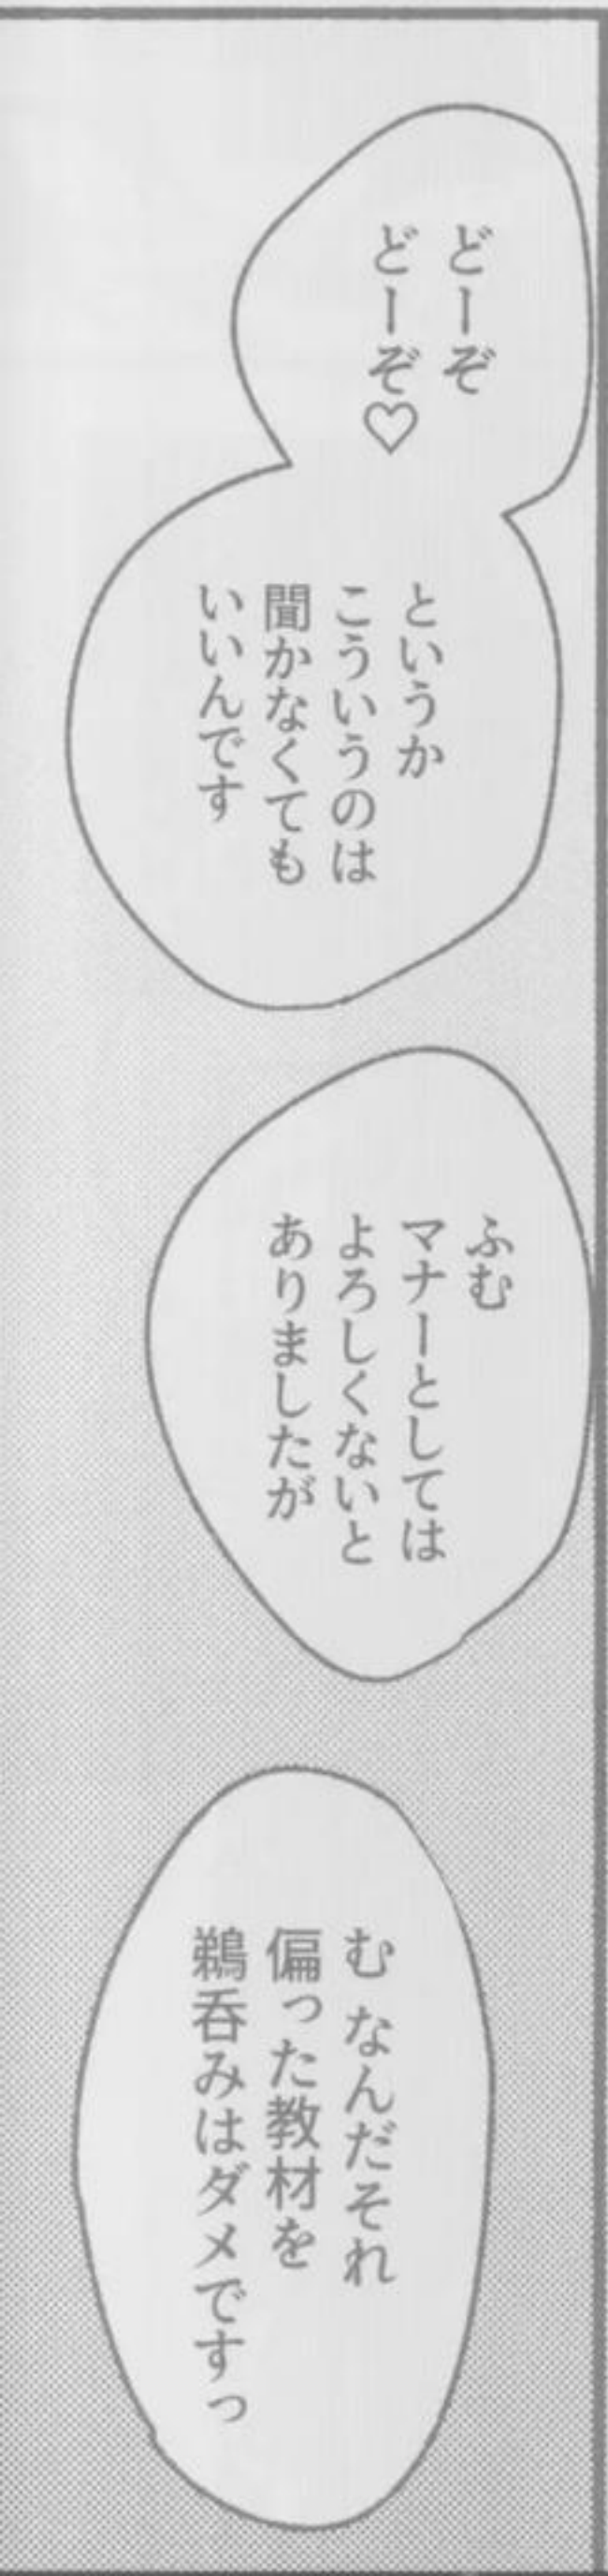 どーぞ
どーぞ♡
というか
こういうのは
聞かなくても
いいんです
ふむ
マナーとしては
よろしくないと
ありましたが
む なんだそれ
偏った教材を
鵜呑みはダメですっ